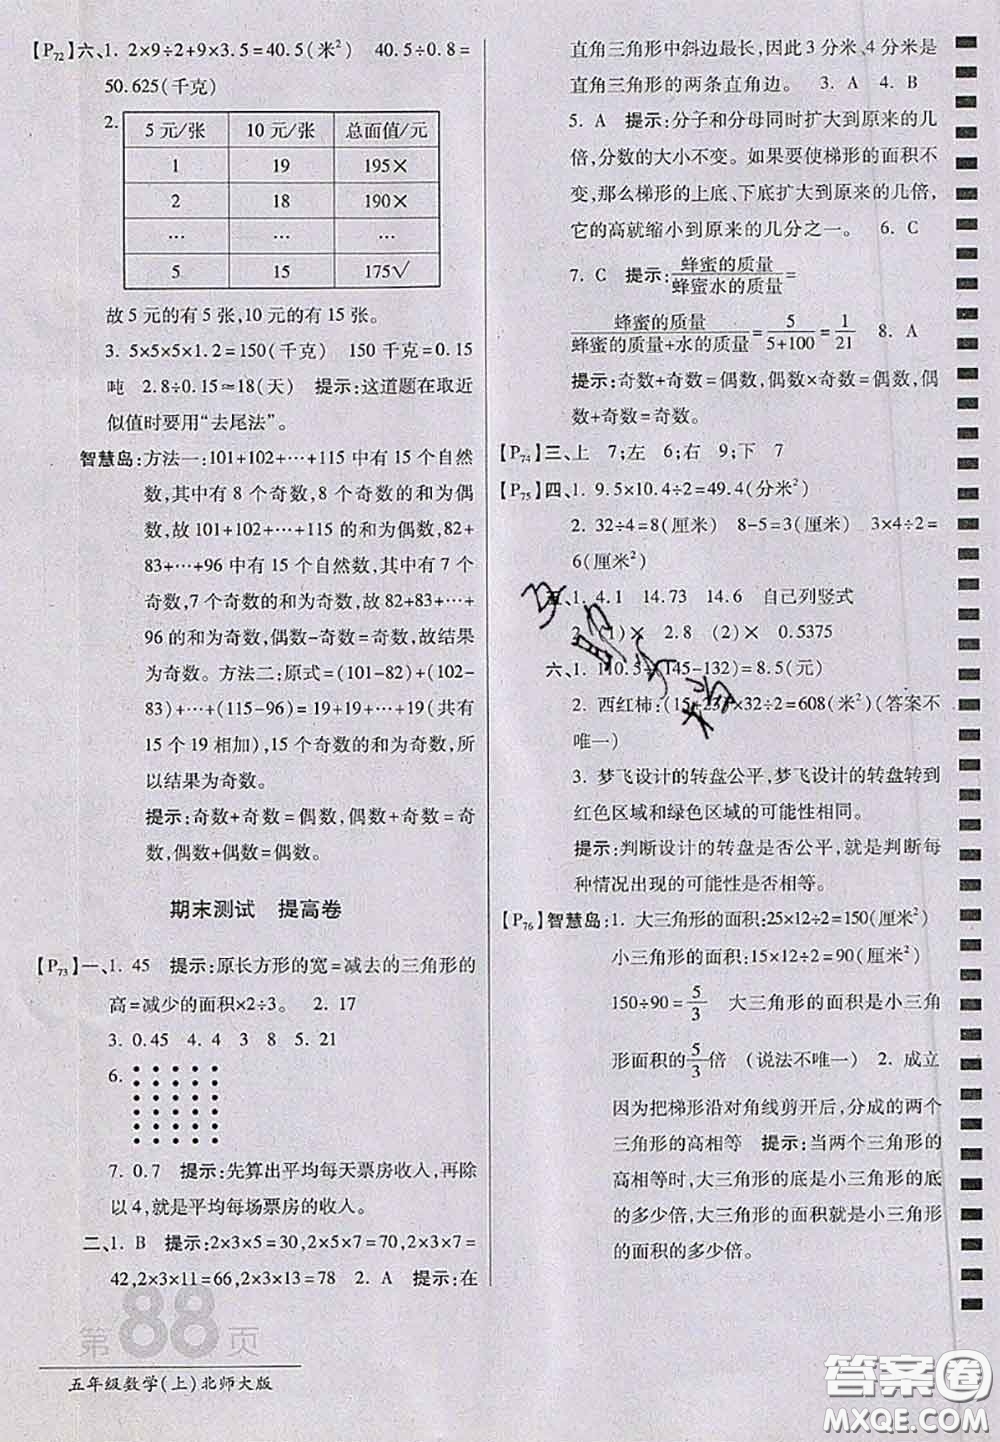 【P72】六、1. 2×9÷2+9×3.5=40.5(米²) 40.5÷0.8=
50.625(千克)
2.
5 元/张 10 元/张 总面值/元
1 19 195×
2 18 190×
… … …
5 15 175√
故 5 元的有 5 张,10 元的有 15 张。
3. 5×5×5×1.2=150(千克) 150 千克=0.15
吨 2.8÷0.15≈18(天) 提示:这道题在取近
似值时要用“去尾法”。
智慧岛:方法一:101+102+…+115 中有 15 个自然
数,其中有 8 个奇数,8 个奇数的和为偶
数,故 101+102+…+115 的和为偶数,82+
83+…+96 中有 15 个自然数,其中有 7 个
奇数,7 个奇数的和为奇数,故 82+83+…+
96 的和为奇数,偶数-奇数=奇数,故结果
为奇数。方法二:原式=(101-82)+(102-
83)+…+(115-96)=19+19+…+19(共有
15 个 19 相加),15 个奇数的和为奇数,所
以结果为奇数。
提示:奇数+奇数=偶数,偶数+奇数=奇
数,偶数+偶数=偶数。
期末测试 提高卷
【P73】一、1. 45 提示:原长方形的宽=减去的三角形的
高=减少的面积×2÷3。 2. 17
3. 0.45 4. 4 3 8 5. 21
6.
7. 0.7 提示:先算出平均每天票房收人,再除
以 4,就是平均每场票房的收人。
二、1. B 提示:2×3×5=30,2×5×7=70,2×3×7=
42,2×3×11=66,2×3×13=78 2. A 提示:在
第88页
五年级数学(上)北师大版
直角三角形中斜边最长,因此 3 分米、4 分米是
直角三角形的两条直角边。 3. A 4. B
5. A 提示:分子和分母同时扩大到原来的几
倍,分数的大小不变。如果要使梯形的面积不
变,那么梯形的上底、下底扩大到原来的几倍,
它的高就缩小到原来的几分之一。 6. C
7. C 提示:蜂蜜的质量/蜂蜜水的质量=
蜂蜜的质量/蜂蜜的质量+水的质量=5/5+100=1/21 8. A
提示:奇数+奇数=偶数,偶数×奇数=偶数,偶
数+奇数=奇数。
【P74】三、上 7;左 6;右 9;下 7
【P75】四、1. 9.5×10.4÷2=49.4(分米²)
2. 32÷4=8(厘米) 8-5=3(厘米) 3×4÷2=
6(厘米²)
1. 4.1 14.73 14.6 自己列竖式
(1)× 2.8 (2)× 0.5375
六、1. 110.5÷(145-132)=8.5(元)
2. 西红柿:(15+23)×32÷2=608(米²)(答案不
唯一)
3. 梦飞设计的转盘公平,梦飞设计的转盘转到
红色区域和绿色区域的可能性相同。
提示:判断设计的转盘是否公平,就是判断每
种情况出现的可能性是否相等。
【P76】智慧岛:1. 大三角形的面积:25×12÷2=150(厘米²)
小三角形的面积:15×12÷2=90(厘米²)
150÷90=5/3 大三角形的面积是小三角
形面积的5/3倍 (说法不唯一) 2. 成立
因为把梯形沿对角线剪开后,分成的两个
三角形的高相等 提示:当两个三角形的
高相等时,大三角形的底是小三角形的底
的多少倍,大三角形的面积就是小三角形
的面积的多少倍。
答案圈
MXQE.COM